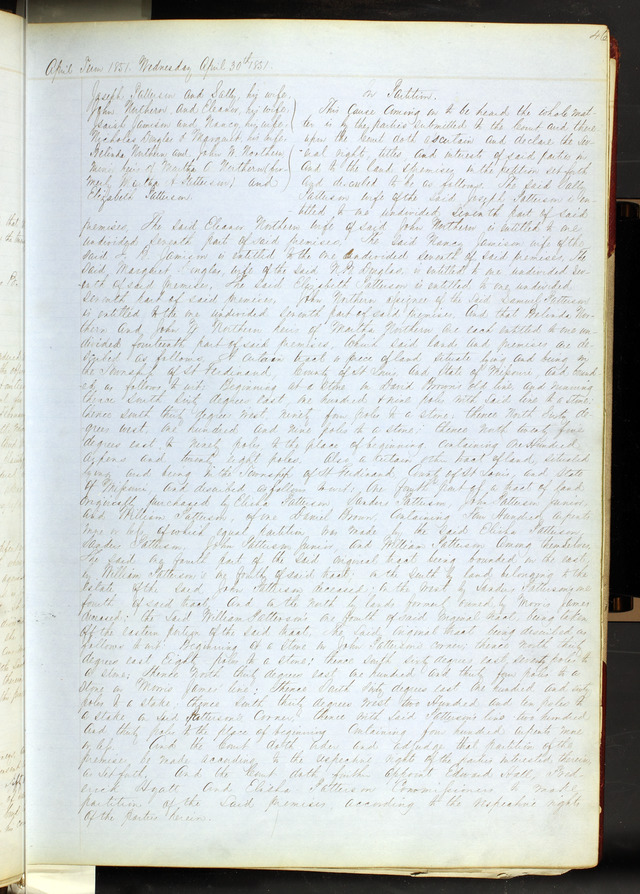 46
April Term 1851. Wednesday April 30th 1851.
Joseph Patterson and Sally, his wife,
John Northern and Eleanor, his wife,
Isaiah Jamison and Nancy, his wife,
Nicholas Douglas & Margaret his wife
Malinda Northern and John W Northern
minor heirs of Martha A Northern (for-
merly Patterson) and
Elizabeth Patterson.
In Partition.
This Cause Coming on to be heard the whole mat-
ter is by the parties submitted to the Court and there
upon the Court doth ascertain and declare the sev-
eral rights, titles and interests of said parties in
and to the land & premises in the petition set forth
and described to be as follows. The said Sally
Patterson wife of the said Joseph Patterson is en-
titled to one undivided seventh part of said
premises. The said Eleanor Northern wife of said John Northern is entitled to one
undivided seventh part of said premises. The said Nancy Jamison wife of the
said Jamison is entitled to the one undivided seventh of said premises. The
said Margaret Douglas, wife of the said Douglas is entitled to one undivided sev-
enth of said premises. The said Elizabeth Patterson is entitled to one undivided
seventh part of said premises. John Northern assignee of the said Samuel Patterson
is entitled to the one undivided seventh part of said premises. And that Malinda Nor-
thern and John W Northern heirs of Martha Northern are each entitled to one un-
divided fourteenth part of said premises. Which said lands and premises are de-
scribed as follows. A certain tract or piece of land situate lying and being in
the Township of St Ferdinand County of St Louis and State of Missouri and bound-
ed as follows to wit: Beginning at a Stone in David Brown's old line and running
thence South Sixty degrees east one hundred & nine poles with said line to a stone:
thence south thirty degrees West Ninety four poles to a stone: thence North Sixty de-
grees west, one hundred and nine poles to a stone: thence North
degrees east to Ninety poles to the place of beginning containing
arpens and twenty eight poles. Also a certain other tract of land, situated
lying and being in the Township of St Ferdinand County of St Louis and State
of Missouri and described as follows to wit: One fourth part of a tract of land
originally purchased by Elisha Patterson John Patterson junior,
and William Patterson, of one David Brown, containing Four Hundred arpents
more or less of which equal partition was made by the said Elisha Patterson
Patterson, John Patterson junior, and William Patterson among themselves
The said one fourth part of the said original tract being bounded on the east,
by William Patterson's one fourth of said tract: on the South by land belonging to the
estate of the said John Patterson deceased: to the West by Patterson's one
fourth of said tract: And to the North by lands formerly owned by Morris James
deceased: the said William Patterson's one fourth of said original tract being taken
off the eastern portion of the said tract. The said original tract being described as
follows to wit: Beginning at a Stone in John Patterson's corner; thence north thirty
degrees east Eighty poles to a stone: thence South Sixty degrees east seventy poles to
a stone; thence North thirty degrees east one hundred and thirty four poles to a
stone in Morris James' line: thence South Sixty degrees east one hundred and sixty
poles to a stake, thence south thirty degrees West Two Hundred and ten poles to
a stake in said Patterson's Corner. thence with said Patterson's line two hundred
and thirty poles to the place of beginning Containing four hundred arpents more
or less. And the Court doth order and adjudge that partition of the
premises be made according to the respective rights of the parties interested therein
as set forth. And the Court doth further appoint Edward Hall,
Hyatt and Elisha Patterson Commissioners to make
partition of the said premises according to the respective rights
of the parties herein.